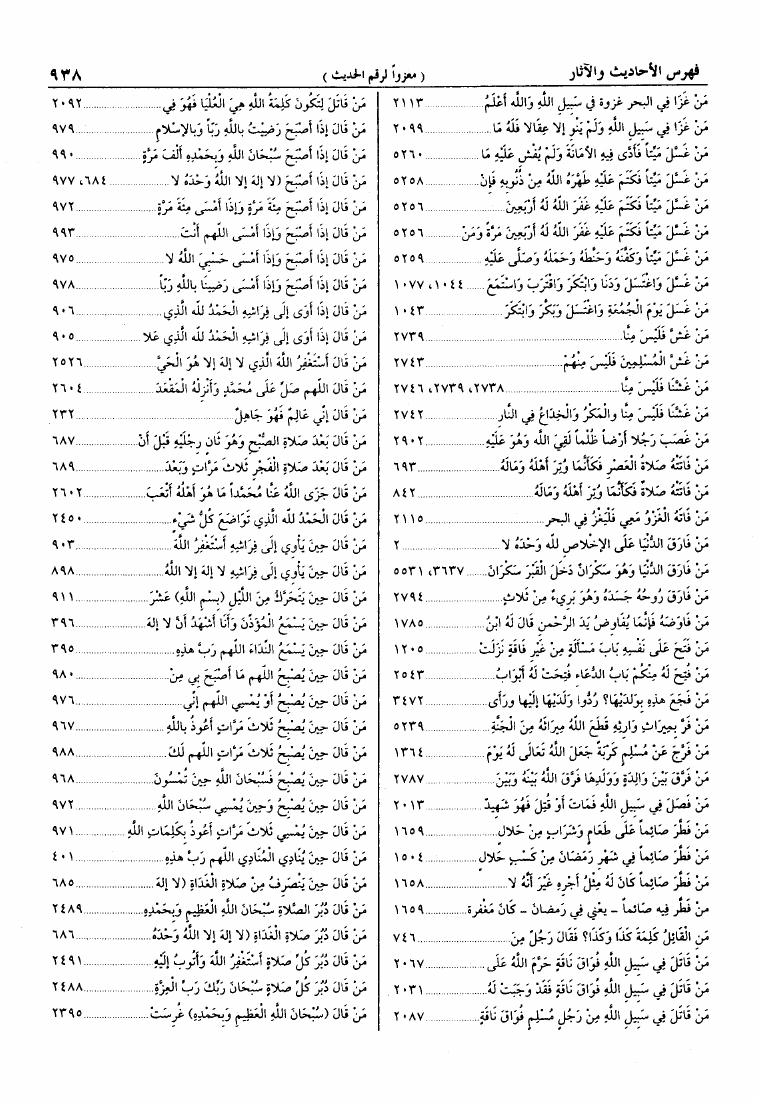 فهرس الأحاديث والآثار ( معزواً لرقم الحديث ) ٩٣٨
مَنْ غَزَا فِي البحر غزوة في سَبِيلِ اللَّهِ وَاللَّه أَعْلَمُ ........ ٢١١٣
مَنْ غَزَا فِي سَبِيلِ اللَّهِ وَلَمْ يَنْوِ إلا عِقَالا فَلَهُ مَا ........ ٢٠٩٩
مَنْ غَسَلَ مَيِّتاً فَأَدَّى فِيهِ الأَمَانَةَ وَلَمْ يُفْشِ عَلَيْهِ مَا ........ ٥٢٦٠
مَنْ غَسَّلَ مَيِّتاً فَكَتَمَ عَلَيْهِ طَهَّرَهُ اللَّهُ مِنْ ذُنُوبِهِ فَإِنْ ........ ٥٢٥٨
مَنْ غَسَّلَ مَيِّتاً فَكَتَمَ عَلَيْهِ غَفَرَ اللَّهُ لَهُ أَرْبَعِينَ ........ ٥٢٥٦
مَنْ غَسَّلَ مَيِّتاً فَكَتَمَ عَلَيْهِ غَفَرَ اللَّهُ لَهُ أَرْبَعِينَ مَرَّةً وَمَنْ ........ ٥٢٥٦
مَنْ غَسَّلَ مَيِّتاً وَكَفَّنَهُ وَحَنَّطَهُ وَحَمَلَهُ وَصَلَّى عَلَيْهِ ........ ٥٢٥٩
مَنْ غَسَّلَ وَاغْتَسَلَ وَدَنَا وَابْتَكَرَ وَاقْتَرَبَ وَاسْتَمَعَ ........ ١٠٤٤، ١٠٧٧
مَنْ غَسَلَ يَوْمَ الْجُمُعَةِ وَاغْتَسَلَ وَبَكَّرَ وَابْتَكَرَ ........ ١٠٤٣
مَنْ غَشَّ فَلَيْسَ مِنَّا ........ ٢٧٣٩
مَنْ غَشَّ الْمُسْلِمِينَ فَلَيْسَ مِنْهُمْ ........ ٢٧٤٣
مَنْ غَشَّنَا فَلَيْسَ مِنَّا ........ ٢٧٣٨، ٢٧٣٩، ٢٧٤٦
مَنْ غَشَّنَا فَلَيْسَ مِنَّا والمَكْرُ وَالْخِدَاعُ فِي النَّارِ ........ ٢٧٤٢
مَنْ غَصَبَ رَجُلا أَرْضاً ظُلْماً لَقِيَ اللَّه وَهُوَ عَلَيْهِ ........ ٢٩٠٢
مَنْ فَاتَتْهُ صَلَاةُ الْعَصْرِ فَكَأَنَّمَا وُتِرَ أَهْلَهُ وَمَالَهُ ........ ٦٩٣
مَنْ فَاتَتْهُ صَلاةٌ فَكَأَنَّمَا وُتِرَ أَهْلَهُ وَمَالَهُ ........ ٨٤٢
مَنْ فَاتَهُ الْغَزْوُ مَعِي فَلْيَغْزُ في البحر ........ ٢١١٥
مَنْ فَارَقَ الدُّنْيَا عَلَى الإِخْلاصِ لله وَحْدَهُ لا ........ ٢
مَنْ فَارَقَ الدُّنْيَا وَهُوَ سَكْرَانُ دَخَلَ الْقَبْرَ سَكْرَانَ ........ ٣٦٣٧، ٥٥٣١
مَنْ فَارَقَ رُوحُهُ جَسَدَهُ وَهُوَ بَرِيءٌ مِنْ ثَلاثٍ ........ ٢٧٩٤
مَنْ فَاوَضَهُ فَإِنَّمَا يُفَاوِضُ يَدَ الرَّحْمنِ قَالَ لَهُ ابْنُ ........ ١٧٨٥
مَنْ فَتَحَ عَلَى نَفْسِهِ بَابَ مَسْأَلَةٍ مِنْ غَيْرِ فَاقَةٍ نَزَلَتْ ........ ١٢٠٥
مَنْ فُتِحَ لَهُ مِنْكُمْ بَابُ الدُّعَاءِ فُتِحَتْ لَهُ أَبْوَابُ ........ ٢٥٤٣
مَنْ فَجَعَ هذِهِ بِوَلَدَيْهَا؟ رُدُّوا وَلَدَيْهَا إِلَيْهَا ورَأَى ........ ٣٤٧٢
مَنْ فَرَّ بِمِيرَاثِ وَارِثِهِ قَطَعَ اللَّهُ مِيرَاثَهُ مِنَ الْجَنَّةِ ........ ٥٢٣٩
مَنْ فَرَّجَ عَنْ مُسْلِمٍ كَرْبَةً جَعَلَ اللَّهُ تَعَالَى لَهُ يَوْمَ ........ ١٣٦٤
مَنْ فَرَّقَ بَيْنَ وَالِدَةٍ وَوَلَدِهَا فَرَّقَ اللَّهُ بَيْنَهُ وَبَيْنَ ........ ٢٧٨٧
مَنْ فَصَلَ فِي سَبِيلِ اللَّهِ فَمَاتَ أَوْ قُتِلَ فَهُوَ شَهِيدٌ ........ ٢٠١٣
مَنْ فَطَّرَ صَائِماً عَلَى طَعَامٍ وَشَرَابٍ مِنْ حَلالٍ ........ ١٦٥٩
مَنْ فَطَّرَ صَائِماً فِي شَهْرِ رَمَضَانَ مِنْ كَسْبٍ حَلالٍ ........ ١٥٠٤
مَنْ فَطَّرَ صَائِماً كَانَ لَهُ مِثْلُ أَجْرِهِ غَيْرَ أَنَّهُ لا ........ ١٦٥٨
من فَطَّر فيه صَائماً - يعني في رَمضانَ - كَانَ مَغْفرةً ........ ١٦٥٩
مَنِ الْقَائِلُ كَلِمَةَ كَذَا وَكَذَا؟ فَقَالَ رَجُلٌ مِنَ ........ ٧٤٦
مَنْ قَاتَلَ فِي سَبِيلِ اللَّهِ فُوَاقَ نَاقَةٍ حَرَّمَ اللَّهُ عَلَى ........ ٢٠٦٧
مَنْ قَاتَلَ فِي سَبِيلِ اللَّهِ فُوَاقَ نَاقَةٍ فَقَدْ وَجَبَتْ لَهُ ........ ٢٠٣١
مَنْ قَاتَلَ فِي سَبِيلِ اللَّهِ مِنْ رَجُلٍ مُسْلِمٍ فُوَاقَ نَاقَةٍ ........ ٢٠٨٧
مَنْ قَاتَلَ لِتَكُونَ كَلِمَةُ اللَّهِ هِيَ الْعُلْيَا فَهُوَ فِي ........ ٢٠٩٢
مَنْ قَالَ إِذَا أَصْبَحَ رَضِيْتُ بِاللَّهِ رَبّاً وَبِالإِسْلامِ ........ ٩٧٩
مَنْ قَالَ إِذَا أَصْبَحَ سُبْحَانَ اللَّهِ وَبِحَمْدِهِ أَلْفَ مَرَّةٍ ........ ٩٩٠
مَنْ قَالَ إِذَا أَصْبَحَ (لا إِلهَ إِلا اللَّهُ وَحْدَهُ لا ........ ٦٨٤، ٩٧٧
مَنْ قَالَ إِذَا أَصْبَحَ مِئَةَ مَرَّةٍ وَإِذَا أَمْسَى مِئَةَ مَرَّةٍ ........ ٩٧٢
مَنْ قَالَ إِذَا أَصْبَحَ وَإِذَا أَمْسَى اللهم أَنْتَ ........ ٩٩٣
مَنْ قَالَ إِذَا أَصْبَحَ وَإِذَا أَمْسَى حَسْبِيَ اللَّهُ لا ........ ٩٧٥
مَنْ قَالَ إِذَا أَصْبَحَ وَإِذَا أَمْسَى رَضِينَا بِاللَّهِ رَبّاً ........ ٩٧٨
مَنْ قَالَ إِذَا أَوَى إِلَى فِرَاشِهِ الْحَمْدُ لله الَّذِي ........ ٩٠٦
مَنْ قَالَ إِذَا أَوَى إِلَى فِرَاشِهِ الْحَمْدُ لله الَّذِي عَلا ........ ٩٠٥
مَنْ قَالَ أَسْتَغْفِرُ اللَّهَ الَّذِي لا إِلهَ إِلا هُوَ الْحَيَّ ........ ٢٥٢٦
مَنْ قَالَ اللهم صَلِّ عَلَى مُحَمَّدٍ وَأَنْزِلْهُ الْمَقْعَدَ ........ ٢٦٠٤
مَنْ قَالَ إِنِّي عَالِمٌ فَهُوَ جَاهِلٌ ........ ٢٣٢
مَنْ قَالَ بَعْدَ صَلاةِ الصُّبْحِ وَهُوَ ثَانٍ رِجْلَيْهِ قَبْلَ أَنْ ........ ٦٨٧
مَنْ قَالَ بَعْدَ صَلاةِ الْفَجْرِ ثَلاثَ مَرَّاتٍ وَبَعْدَ ........ ٦٨٩
مَنْ قَالَ جَزَى اللَّهُ عَنَّا مُحَمَّداً مَا هُوَ أَهْلُهُ أَتْعَبَ ........ ٢٦٠٢
مَنْ قَالَ الْحَمْدُ لله الَّذِي تَوَاضَعَ كُلُّ شَيْءٍ ........ ٢٤٥٠
مَنْ قَالَ حِينَ يَأْوِي إِلَى فِرَاشِهِ أَسْتَغْفِرُ اللَّهَ ........ ٩٠٣
مَنْ قَالَ حِينَ يَأْوِي إِلَى فِرَاشِهِ لا إِلهَ إِلا اللَّهُ ........ ٨٩٨
مَنْ قَالَ حِينَ يَتَحَرَّكُ مِنَ اللَّيْلِ (بِسْمِ اللَّهِ) عَشْرَ ........ ٩١١
مَنْ قَالَ حِينَ يَسْمَعُ الْمُؤَذِّنَ وَأَنَا أَشْهَدُ أَنْ لا إِلهَ ........ ٣٩٦
مَنْ قَالَ حِينَ يَسْمَعُ النِّدَاءَ اللهم رَبَّ هذِهِ ........ ٣٩٥
مَنْ قَالَ حِينَ يُصْبِحُ اللهم مَا أَصْبَحَ بِي مِنْ ........ ٩٨٠
مَنْ قَالَ حِينَ يُصْبِحُ أَوْ يُمْسِي اللهم إِنِّي ........ ٩٧٦
مَنْ قَالَ حِينَ يُصْبِحُ ثَلاثَ مَرَّاتٍ أَعُوذُ بِاللَّهِ ........ ٩٦٧
مَنْ قَالَ حِينَ يُصْبِحُ ثَلاثَ مَرَّاتٍ اللهم لَكَ ........ ٩٨٨
مَنْ قَالَ حِينَ يُصْبِحُ فَسُبْحَانَ اللَّهِ حِينَ تُمْسُونَ ........ ٩٦٨
مَنْ قَالَ حِينَ يُصْبِحُ وَحِينَ يُمْسِي سُبْحَانَ اللَّهِ ........ ٩٧٢
مَنْ قَالَ حِينَ يُمْسِي ثَلاثَ مَرَّاتٍ أَعُوذُ بِكَلِمَاتِ اللَّهِ ........ ٩٧١
مَنْ قَالَ حِينَ يُنَادِي الْمُنَادِي اللهم رَبَّ هذِهِ ........ ٤٠١
مَنْ قَالَ حِينَ يَنْصَرِفُ مِنْ صَلاةِ الْغَدَاةِ (لا إِلهَ ........ ٦٨٥
مَنْ قَالَ دُبُرَ الصَّلاةِ سُبْحَانَ اللَّهِ الْعَظِيمِ وَبِحَمْدِهِ ........ ٢٤٨٩
مَنْ قَالَ دُبُرَ صَلاةِ الْغَدَاةِ (لا إِلهَ إِلا اللَّهُ وَحْدَهُ ........ ٦٨٦
مَنْ قَالَ دُبُرَ كُلِّ صَلاةٍ أَسْتَغْفِرُ اللَّهَ وَأَتُوبُ إِلَيْهِ ........ ٢٤٩١
مَنْ قَالَ دُبُرَ كُلِّ صَلاةٍ سُبْحَانَ رَبِّكَ رَبِّ الْعِزَّةِ ........ ٢٤٨٨
مَنْ قَالَ (سُبْحَانَ اللَّهِ الْعَظِيمِ وَبِحَمْدِهِ) غُرِسَتْ ........ ٢٣٩٥